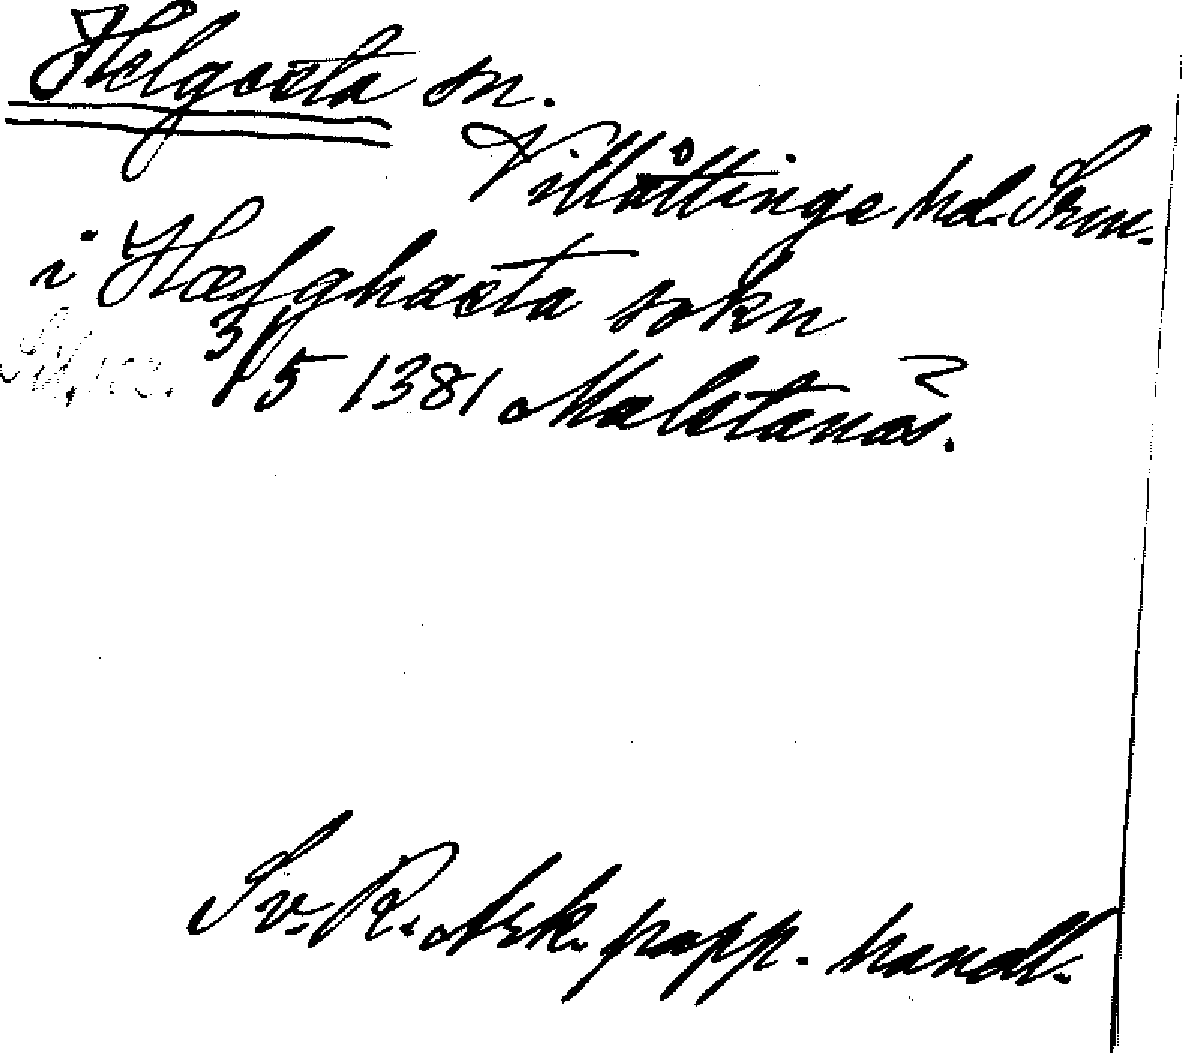 Helgesta sn.
Villåttinge hd. Srm.
i Hælghæsta sokn
3/5 1381 Malstanæs.
Sv. R. Ark. papp. handl.